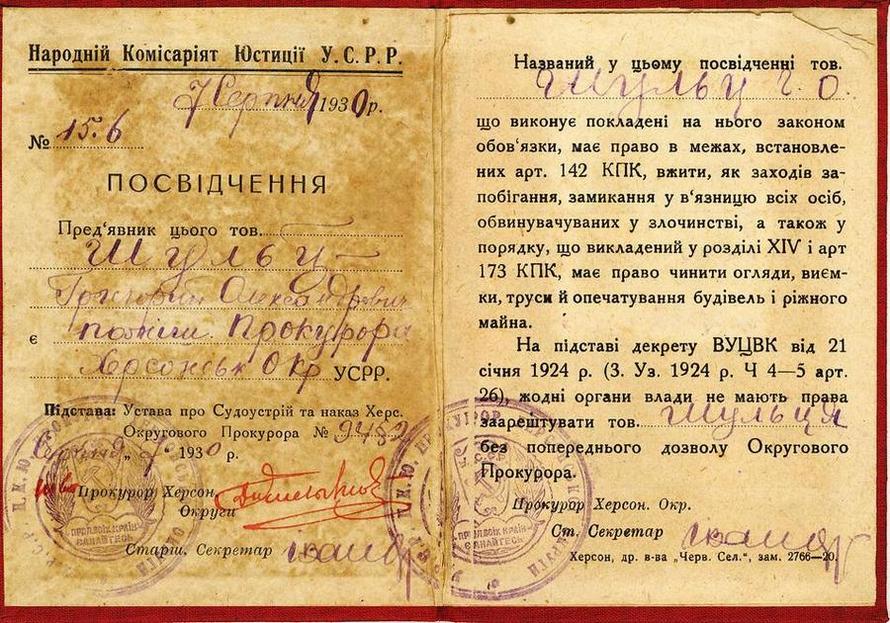 Народній Комісаріят Юстиції У.С.Р.Р.
7 Серпня 1930 р.
№ 156
ПОСВІДЧЕННЯ
Пред'явник цього тов.
Шульц
Григорий Олександрович
є помічн. Прокурора
Херсонськ Окр УСРР.
Підстава: Устава про Судоустрій та наказ Херс.
Округового Прокурора № 9452
Серпня „7" 1930 р.
Прокурор Херсон.
Округи
Старш. Секретар
ПРОЛ. ВСІХ КРАЇН
ЄДНАЙТЕСЬ
Названий у цьому посвідченні тов.
Шульц Г. О.
що виконує покладені на нього законом
обов'язки, має право в межах, встановле-
них арт. 142 КПК, вжити, як заходів за-
побігання, замикання у в'язницю всіх осіб,
обвинувачуваних у злочинстві, а також у
порядку, що викладений у розділі XIV і арт
173 КПК, має право чинити огляди, виєм-
ки, труси й опечатування будівель і ріжного
майна.
На підставі декрету ВУЦВК від 21
січня 1924 р. (З. Уз. 1924 р. Ч 4—5 арт.
26), жодні органи влади не мають права
заарештувати тов. Шульца
без попереднього дозволу Округового
Прокурора.
Прокурор Херсон. Окр.
Ст. Секретар
Херсон, др. в-ва „Черв. Сел.", зам. 2766—20.